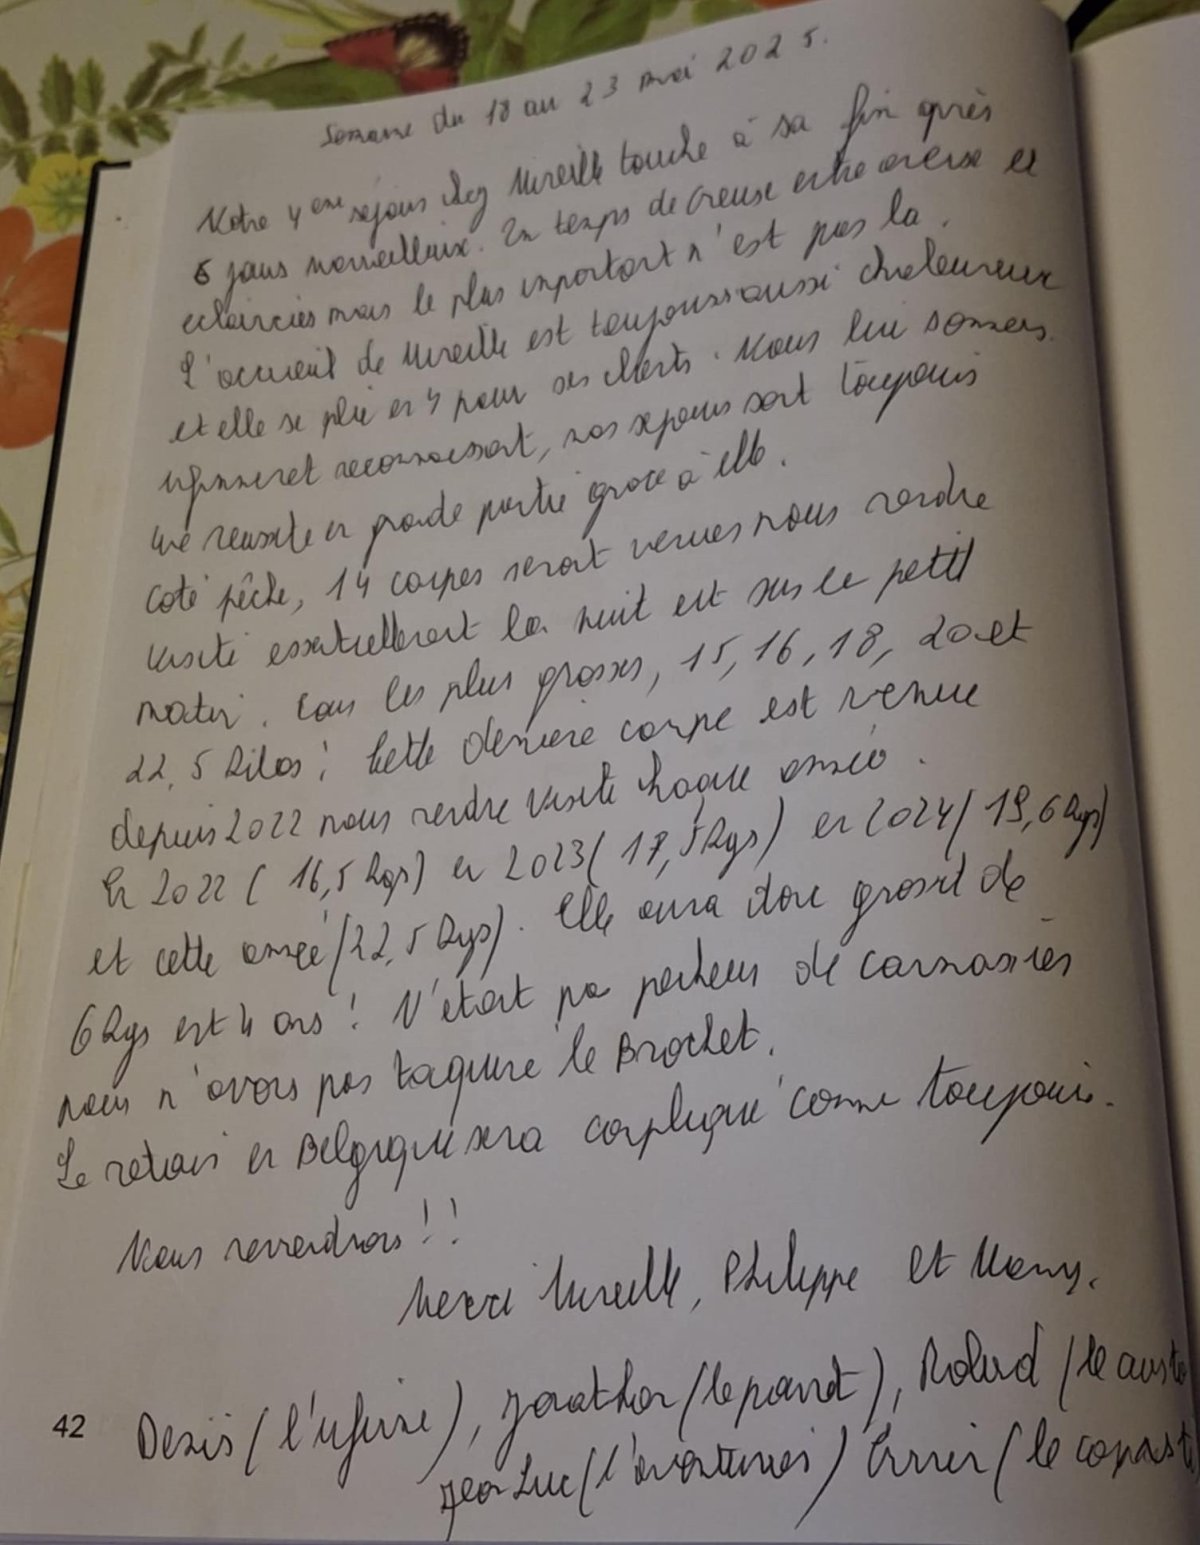 Semaine du 18 au 23 mai 2025.
Notre 4ème séjour chez Mireille touche à sa fin après
6 jours merveilleux. Un temps de Creuse entre averse et
eclaircies mais le plus important n'est pas la.
L'accueil de Mireille est toujours aussi chaleureux
et elle se plie en 4 pour ses clients. Nous lui sommes
infiniment reconnaissant, nos séjours sont toujours
une réussite en grande partie grace à elle.
Coté pêche, 14 carpes seront venues nous rendre
visite essentiellement la nuit et sur le petit
matin. Pour les plus grosses, 15, 16, 18, 20 et
22,5 kilos! Cette derniere carpe est venue
depuis 2022 nous rendre visite chaque année.
En 2022 (16,5 kgs) en 2023 (17,5 kgs) en 2024 (19,6 kgs)
et cette année (22,5 kgs). Elle aura donc grossit de
6 kgs en 4 ans! N'étant pas pecheur de carnassiers
nous n'avons pas taquiné le Brochet.
Le retour en Belgique sera compliqué comme toujours.
Nous reviendrons!!
Merci Mireille, Philippe et
Denis (l'), Jonathan (), Roland (le
Jean Luc (l') (le
42